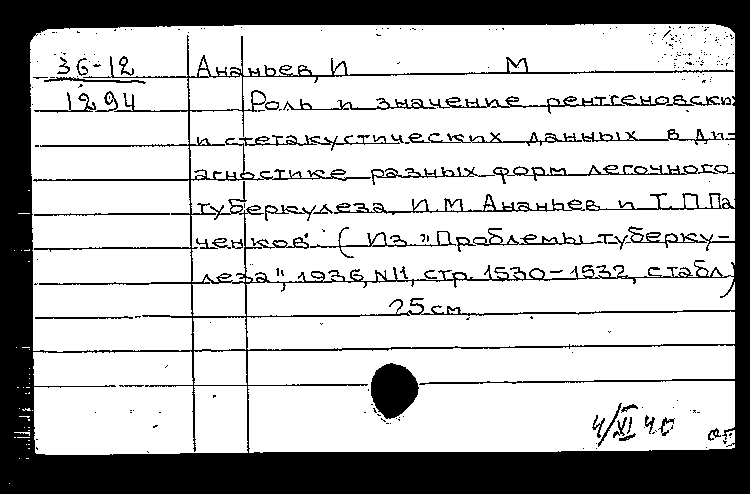 36-12 Ананьев, И М
1294 Роль и значение рентгеновских
и стетакустических данных в ди-
агностике разных форм легочного
туберкулеза. И.М. Ананьев и Т.П. Па
ченков. (Из "Проблемы туберку-
леза", 1936, N11, стр. 1530-1532, с табл)
25 см.
4/XI 40